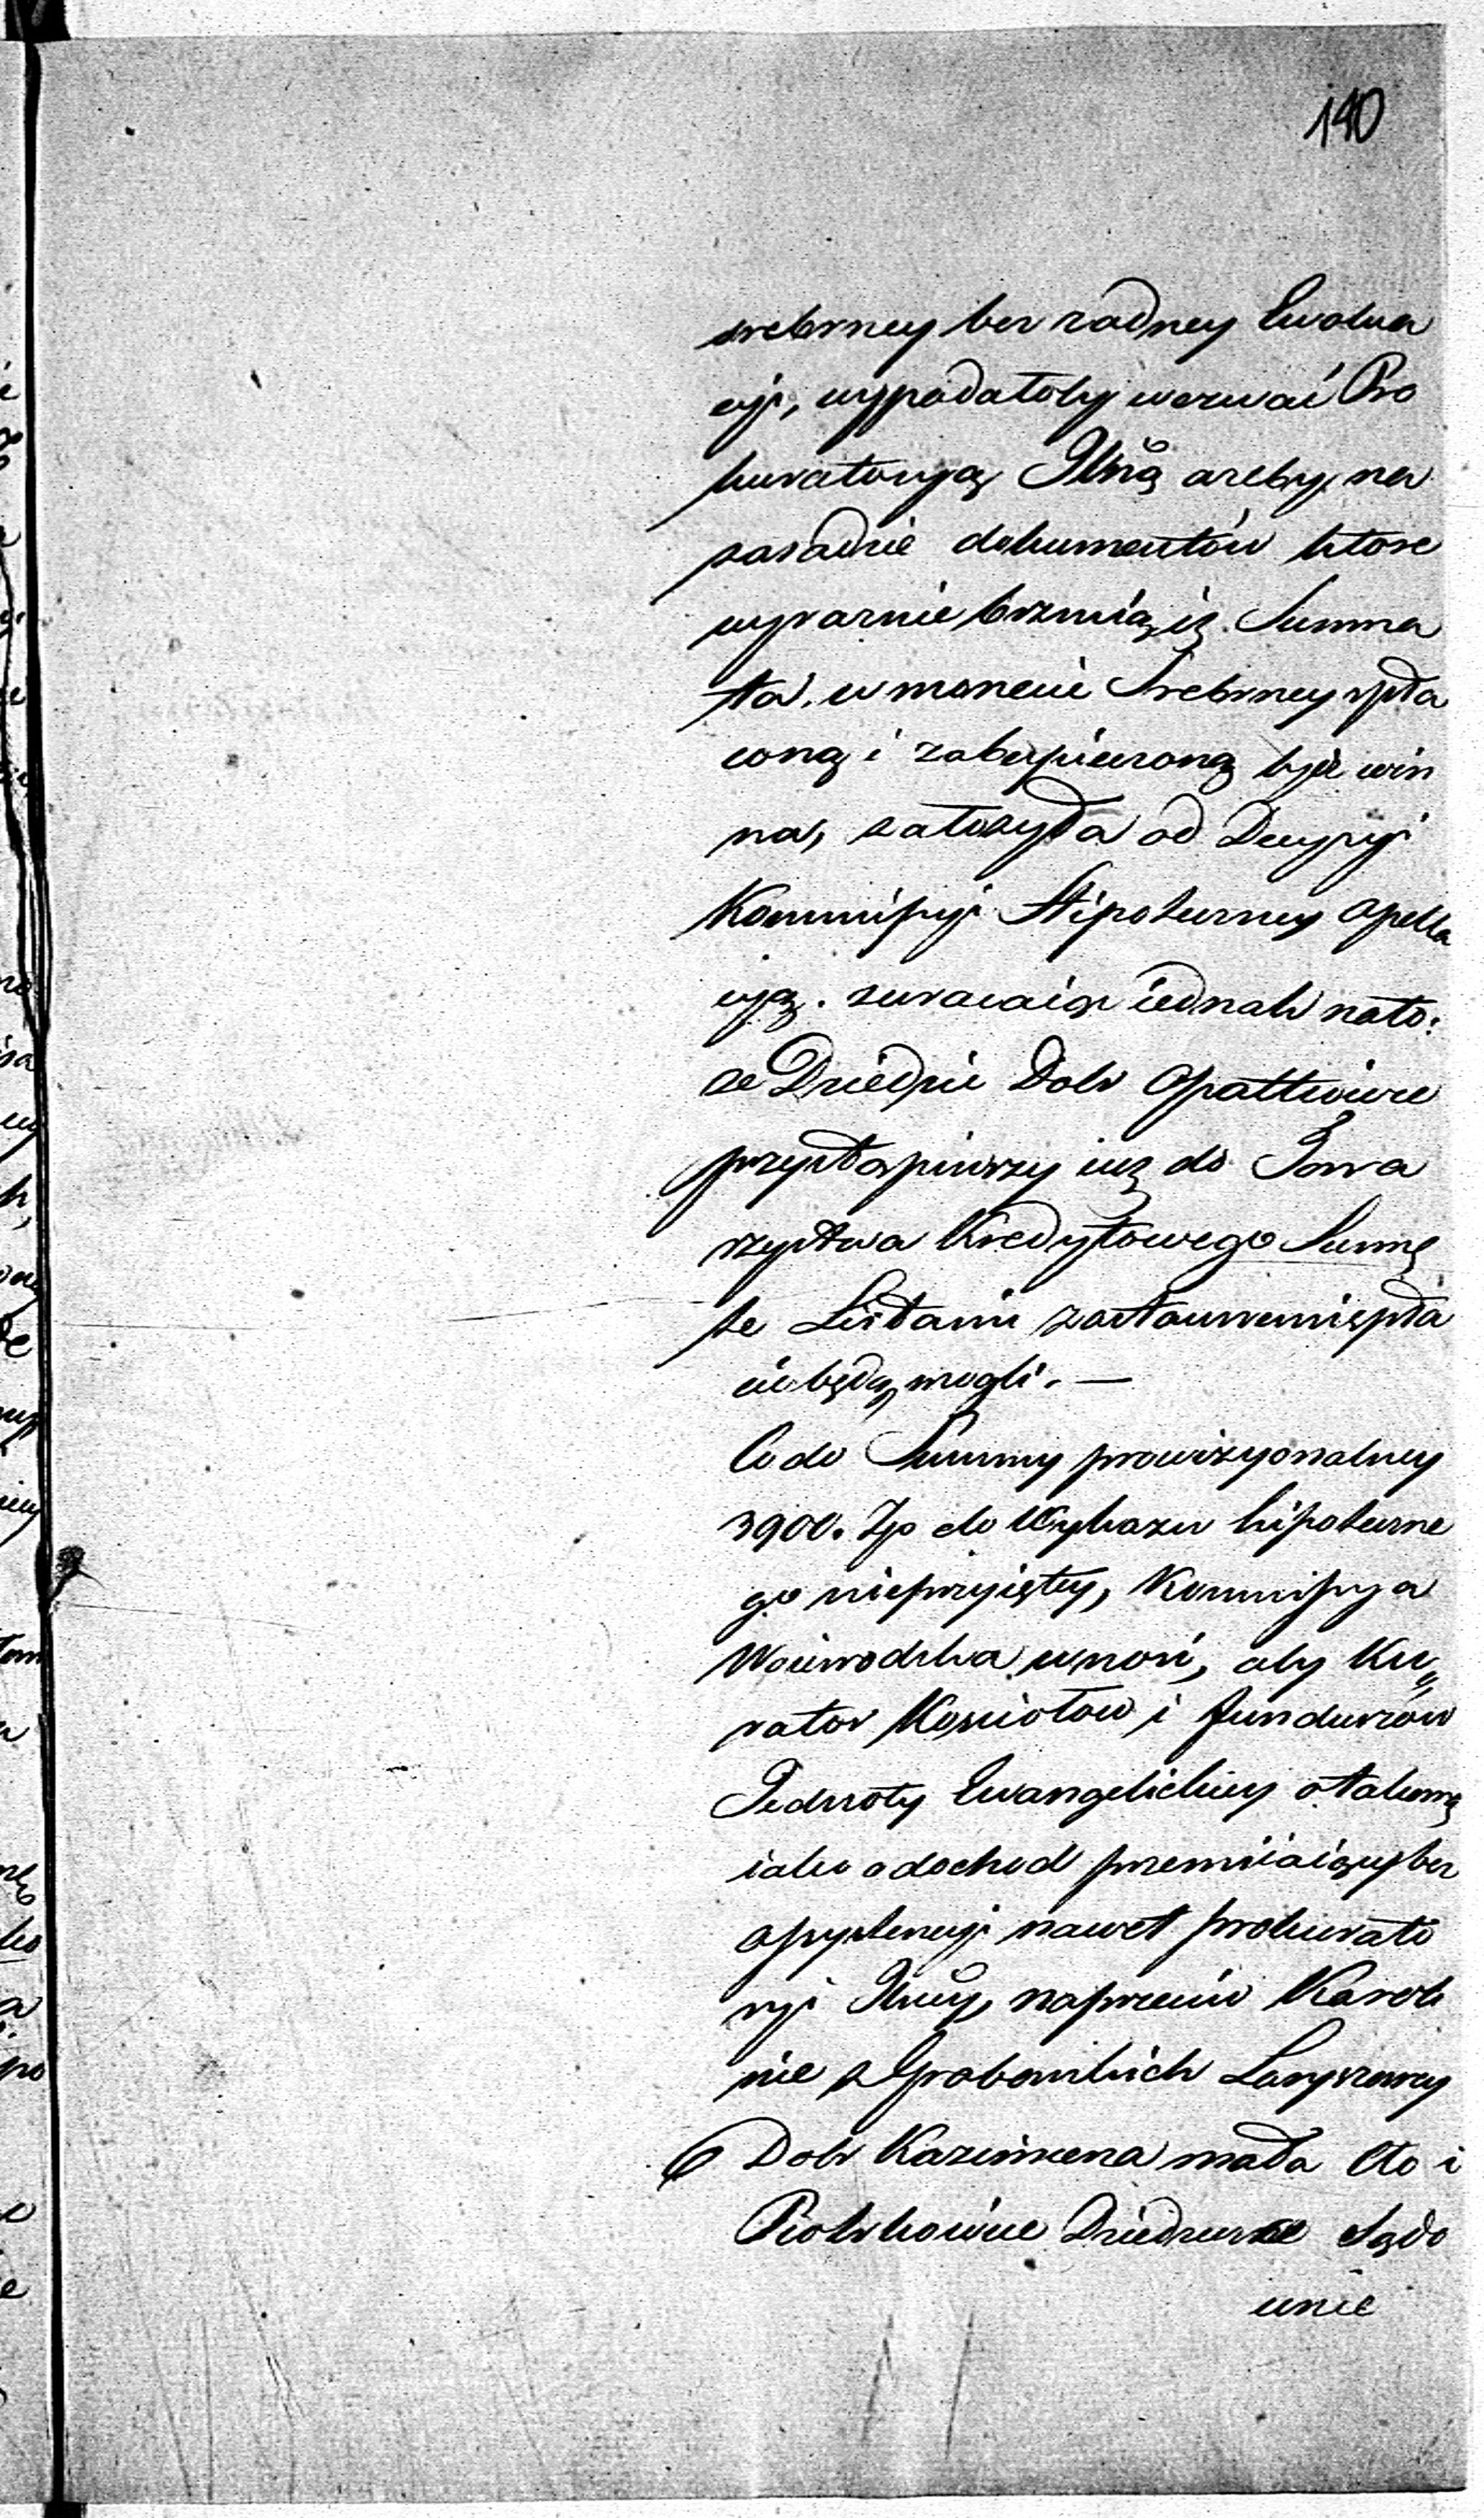 190
srebrney bez żadney Ewolua
cyi, wypadałoby wezwać Pro
kuratoryą Jlną ażeby na
zasadzie dokumentów które
wyraznie brzmią iż Summa
ta, w monecie Srebrney spła
coną i zabespieczoną być win
na, założyła od Decyzyi
Kommissyi Hipoteczney Apella
cyą. zważaiąc iednak nato:
że Dziedzic Dobr Opatkowice
przystąpiwszy iuż do Towa
rzystwa Kredytowego Sumę
te Listami zastawnemi spła
cić będą mogli. —
Co do Summy prowizyonalney
3900. Zp do Wykazu hipoteczne
go nieprzyiętey, Kommissya
Woiewodzka wnosi, aby Ku„
rator Kosciołow i funduszów
Jednoty Ewangelickiey o takową
iako o dochod przemiiaiący bez
assystencyi nawet prokurato
ryi Jlney, naprzeciw Karoli
nie z Grabowskich Laryszowey
Dobr Kazimierza mała &to i
Piotrkowice Dziedziczce Sądo
wnie